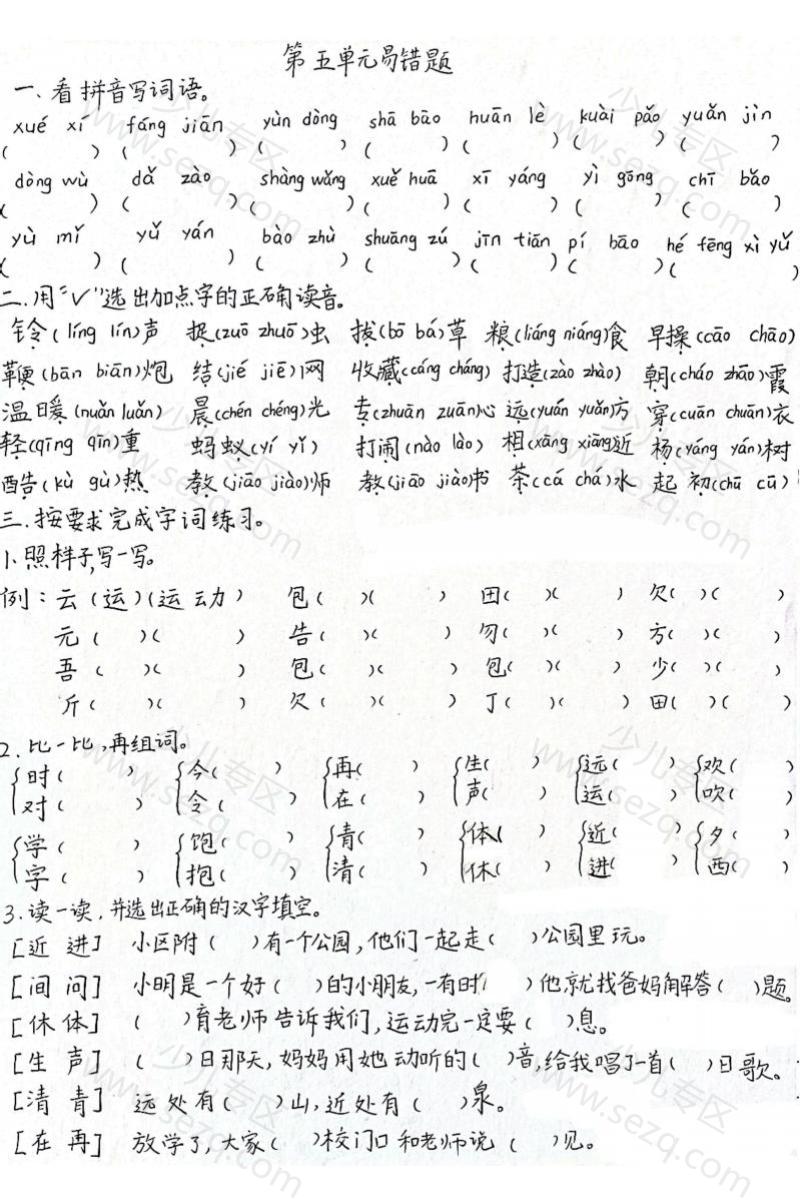 第五单元易错题
一、看拼音写词语。
xué xí fáng jiān yùn dòng shā bāo huān lè kuài pǎo yuǎn jìn
( ) ( ) ( ) ( ) ( ) ( ) ( )
dòng wù dǎ zào shàng wǎng xuě huā xī yáng yì gōng chī bǎo
( ) ( ) ( ) ( ) ( ) ( ) ( )
yù mǐ yǔ yán bào zhù shuāng zú jīn tiān pí bāo hé fēng xì yǔ
( ) ( ) ( ) ( ) ( ) ( ) ( )
二、用“√”选出加点字的正确读音。
铃(líng lín)声 捉(zuō zhuō)虫 拔(bō bá)草 粮(liáng niáng)食 早操(cāo chāo)
鞭(bān biān)炮 结(jié jiē)网 收藏(cáng cháng) 打造(zào zhào) 朝(cháo zhāo)霞
温暖(nuǎn luǎn) 晨(chén chéng)光 专(zhuān zuān)心 远(yuán yuǎn)方 穿(cuān chuān)衣
轻(qīng qīn)重 蚂蚁(yí yǐ) 打闹(nào lào) 相(xāng xiāng)近 杨(yáng yán)树
酷(kù gù)热 教(jiāo jiào)师 教(jiāo jiào)书 茶(cá chá)水 起初(chū cū)
三、按要求完成字词练习。
1.照样子,写一写。
例：云(运)(运动) 包( )( ) 田( )( ) 欠( )( )
元( )( ) 告( )( ) 勿( )( ) 方( )( )
吾( )( ) 包( )( ) 包( )( ) 少( )( )
斤( )( ) 欠( )( ) 丁( )( ) 田( )( )
2.比一比,再组词。
时( ) 今( ) 再( ) 生( ) 远( ) 欢( )
对( ) 令( ) 在( ) 声( ) 运( ) 吹( )
学( ) 饱( ) 青( ) 体( ) 近( ) 夕( )
字( ) 抱( ) 清( ) 休( ) 进( ) 西( )
3.读一读,并选出正确的汉字填空。
[近 进] 小区附( )有一个公园,他们一起走( )公园里玩。
[间 问] 小明是一个好( )的小朋友,一有时( )他就找爸妈解答( )题。
[休 体] ( )育老师告诉我们,运动完一定要( )息。
[生 声] ( )日那天,妈妈用她动听的( )音,给我唱了一首( )日歌。
[清 青] 远处有( )山,近处有( )泉。
[在 再] 放学了,大家( )校门口和老师说( )见。
少儿专区
www.sezq.com